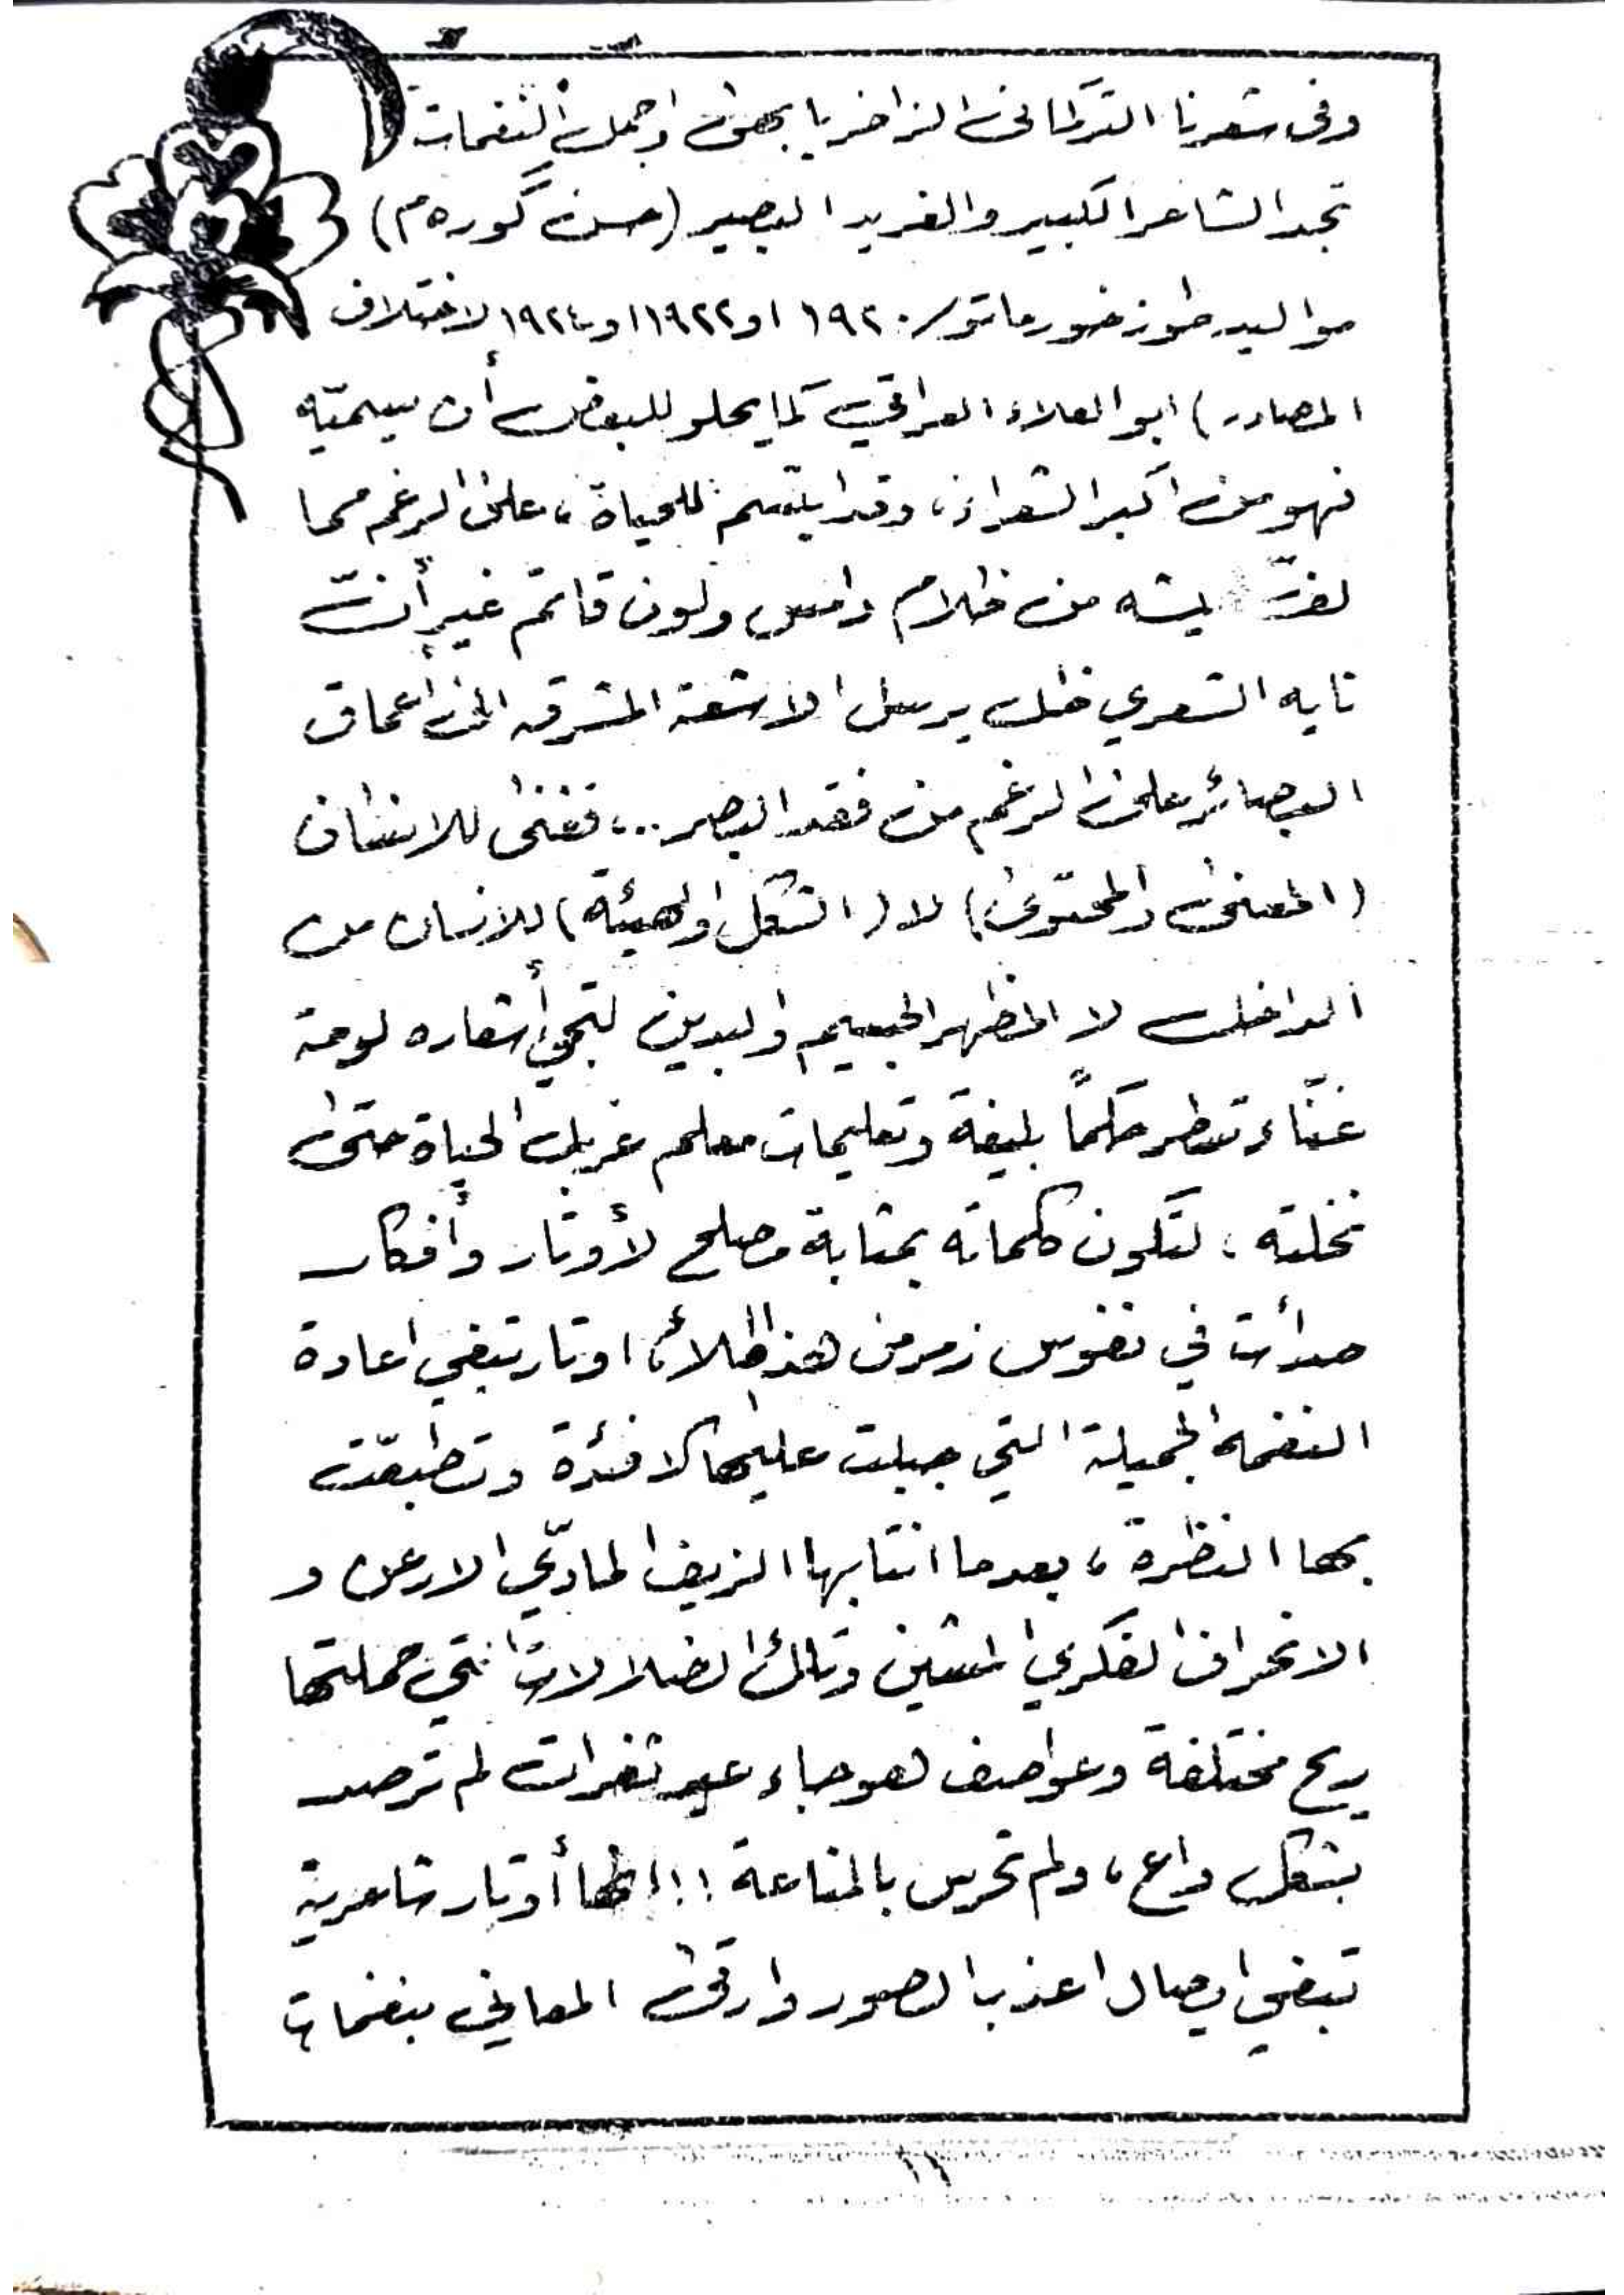 وفى شعرنا التركمانى الزاخر بابهى واجمل النغمات
تجد الشاعر الكبير والفريد البصير (حسن گوره م)
مواليد طوز خورماتو/ ١٩٢٠ او ١٩٢٢ او ١٩٢٤ لاختلاف
المصادر) ابو العلاء العراقي كما يحلو للبعض أن يسميّه
فهو من اكبر الشعراء، وقد ابتسم للحياة، على الرغم مما
من ظلام دامس ولون قاتم غير أنّ
نايه الشعري ظل يرسل الاشعة المشرقه الى أعماق
البصائر على الرغم من فقد البصر..، فغنى للانسان
(المعنى والمحتوى) لا (الشكل والهيئة) للانسان من
الداخل لا المظهر الجسيم والبدين لتجي أشعاره لوحة
غنّاء تنطر حكماً بليغة وتعليمات معلم غربل الحياة حتى
نخلته، لتكون كلماته بمثابة مصلح لأوتار وأفكار
صدأت في نفوس زمر من هذا الملأ، اوتار تبغي اعادة
النغمة الجميلة التي جبلت عليها الافئدة وتطبعّت
بها النظرة، بعدما انتابها الزيف المادّي الارعن و
الانحراف الفكري المشين وتلك الضلالات التي حملتها
ريح مختلفة وعواصف هوجاء عبر ثغرات لم ترصد
بشكل واع، ولم تحرس بالمناعة !! انها أوتار شاعرية
تبغي ايصال اعذب الصور وارقى المعاني بنغمات